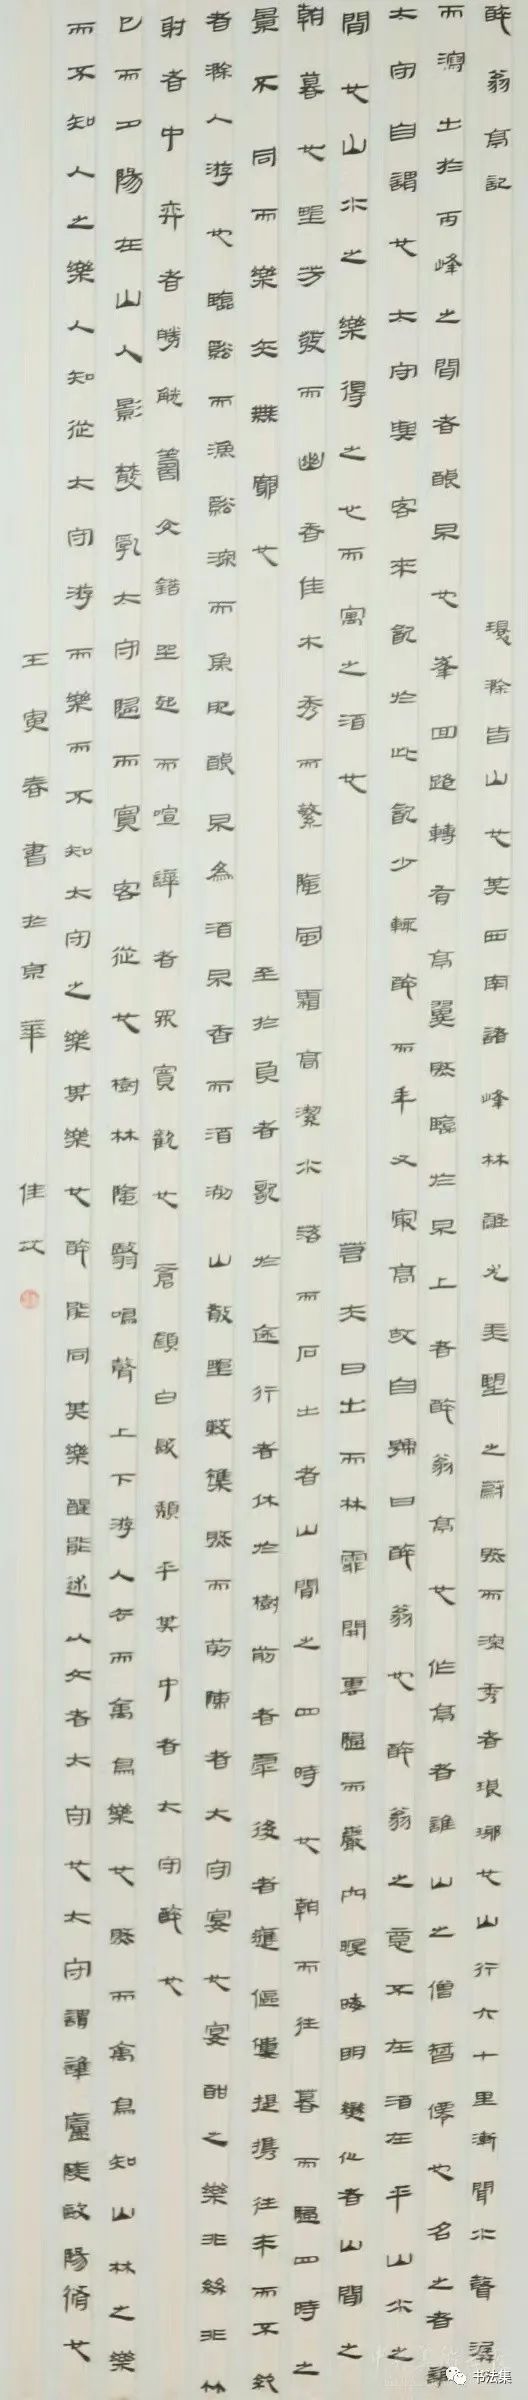 醉翁亭記
環滁皆山也其西南諸峰林壑尤美望之蔚然而深秀者琅琊也山行六七里漸聞水聲潺
而瀉出於兩峰之間者釀泉也峯回路轉有亭翼然臨於泉上者醉翁亭也作亭者誰山之僧智僊也名之者誰
太守自謂也太守與客來飲於此飲少輒醉而年又最高故自號曰醉翁也醉翁之意不在酒在乎山水之
間也山水之樂得之心而寓之酒也
若夫日出而林霏開雲歸而巖穴暝晦明變化者山間之
朝暮也野芳發而幽香佳木秀而繁陰風霜高潔水落而石出者山間之四時也朝而往暮而歸四時之
景不同而樂亦無窮也
至於負者歌於途行者休於樹前者呼後者應傴僂提攜往來而不絕
者滁人游也臨谿而漁谿深而魚肥釀泉為酒泉香而酒洌山肴野蔌雜然而前陳者太守宴也宴酣之樂非絲非竹
射者中弈者勝觥籌交錯坐起而喧譁者眾賓歡也蒼顏白髮頹乎其中者太守醉也
已而夕陽在山人影散亂太守歸而賓客從也樹林陰翳鳴聲上下游人去而禽鳥樂也然而禽鳥知山林之樂
而不知人之樂人知從太守游而樂而不知太守之樂其樂也醉能同其樂醒能述以文者太守也太守謂誰廬陵歐陽脩也
壬寅春書於京華 佳
书法集